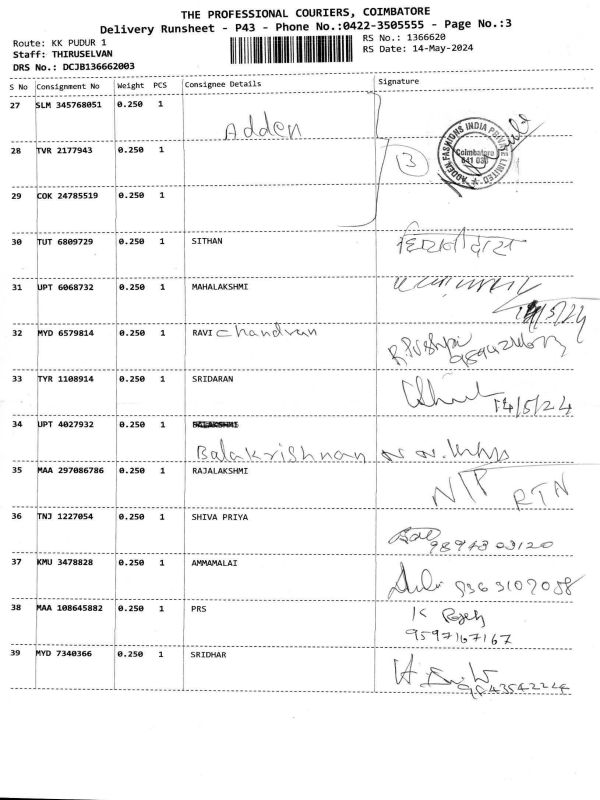 THE PROFESSIONAL COURIERS, COIMBATORE
Delivery Runsheet - P43 - Phone No.:0422-3505555 - Page No.:3
Route: KK PUDUR 1 RS No.: 1366620
Staff: THIRUSELVAN RS Date: 14-May-2024
DRS No.: DCJB136662003
S No Consignment No Weight PCS Consignee Details Signature
27 SLM 345768051 0.250 1
Adden
ADDEN FASHIONS INDIA PRIVATE LIMITED
Coimbatore
641 030
28 TVR 2177943 0.250 1 3
29 COK 24785519 0.250 1
30 TUT 6809729 0.250 1 SITHAN
31 UPT 6068732 0.250 1 MAHALAKSHMI
32 MYD 6579814 0.250 1 RAVI Chandran
R. Pushpa
33 TYR 1108914 0.250 1 SRIDARAN
14/5/24
34 UPT 4027932 0.250 1 BALAKSHMI
Balakrishnan
35 MAA 297086786 0.250 1 RAJALAKSHMI
N/P RTN
36 TNJ 1227054 0.250 1 SHIVA PRIYA
9894303120
37 KMU 3478828 0.250 1 AMMAMALAI
9363107058
38 MAA 108645882 0.250 1 PRS K
9597167167
39 MYD 7340366 0.250 1 SRIDHAR
9843542224